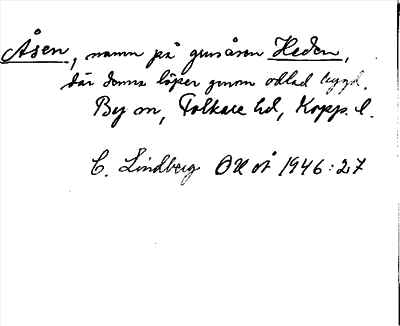 Åsen, namn på grusåsen Heden,
där denna löper genom odlad bygd.
By sn, Folkare hd, Kopp. l.
C. Lindberg OUÅ 1946:27